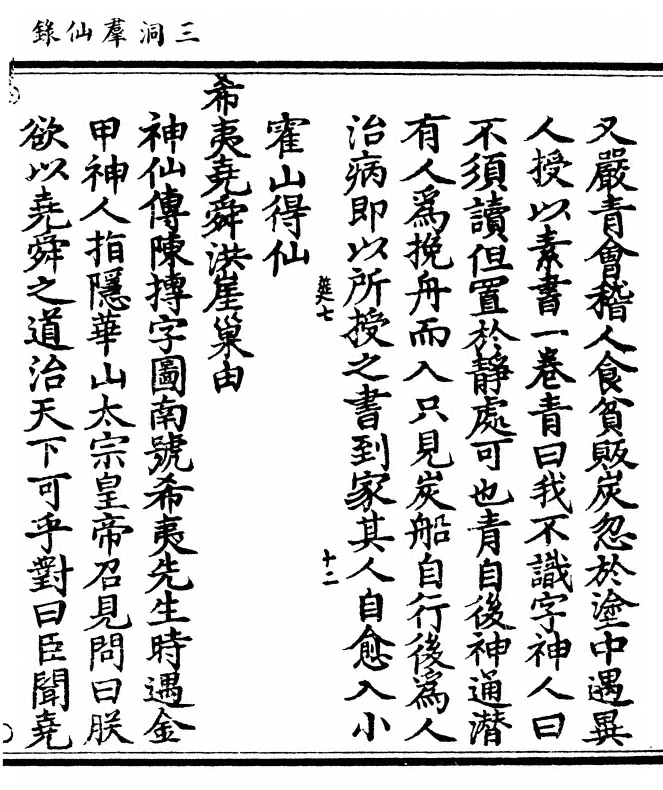 三洞羣仙錄
又嚴青會稽人食貧販炭忽於塗中遇異
人授以素書一卷青曰我不識字神人曰
不須讀但置於靜處可也青自後神通潛
有人爲挽舟而入只見炭船自行後爲人
治病即以所授之書到家其人自愈入小
筵七
十二
霍山得仙
希夷堯舜洪崖巢由
神仙傳陳摶字圖南號希夷先生時遇金
甲神人指隱華山太宗皇帝召見問曰朕
欲以堯舜之道治天下可乎對曰臣聞堯